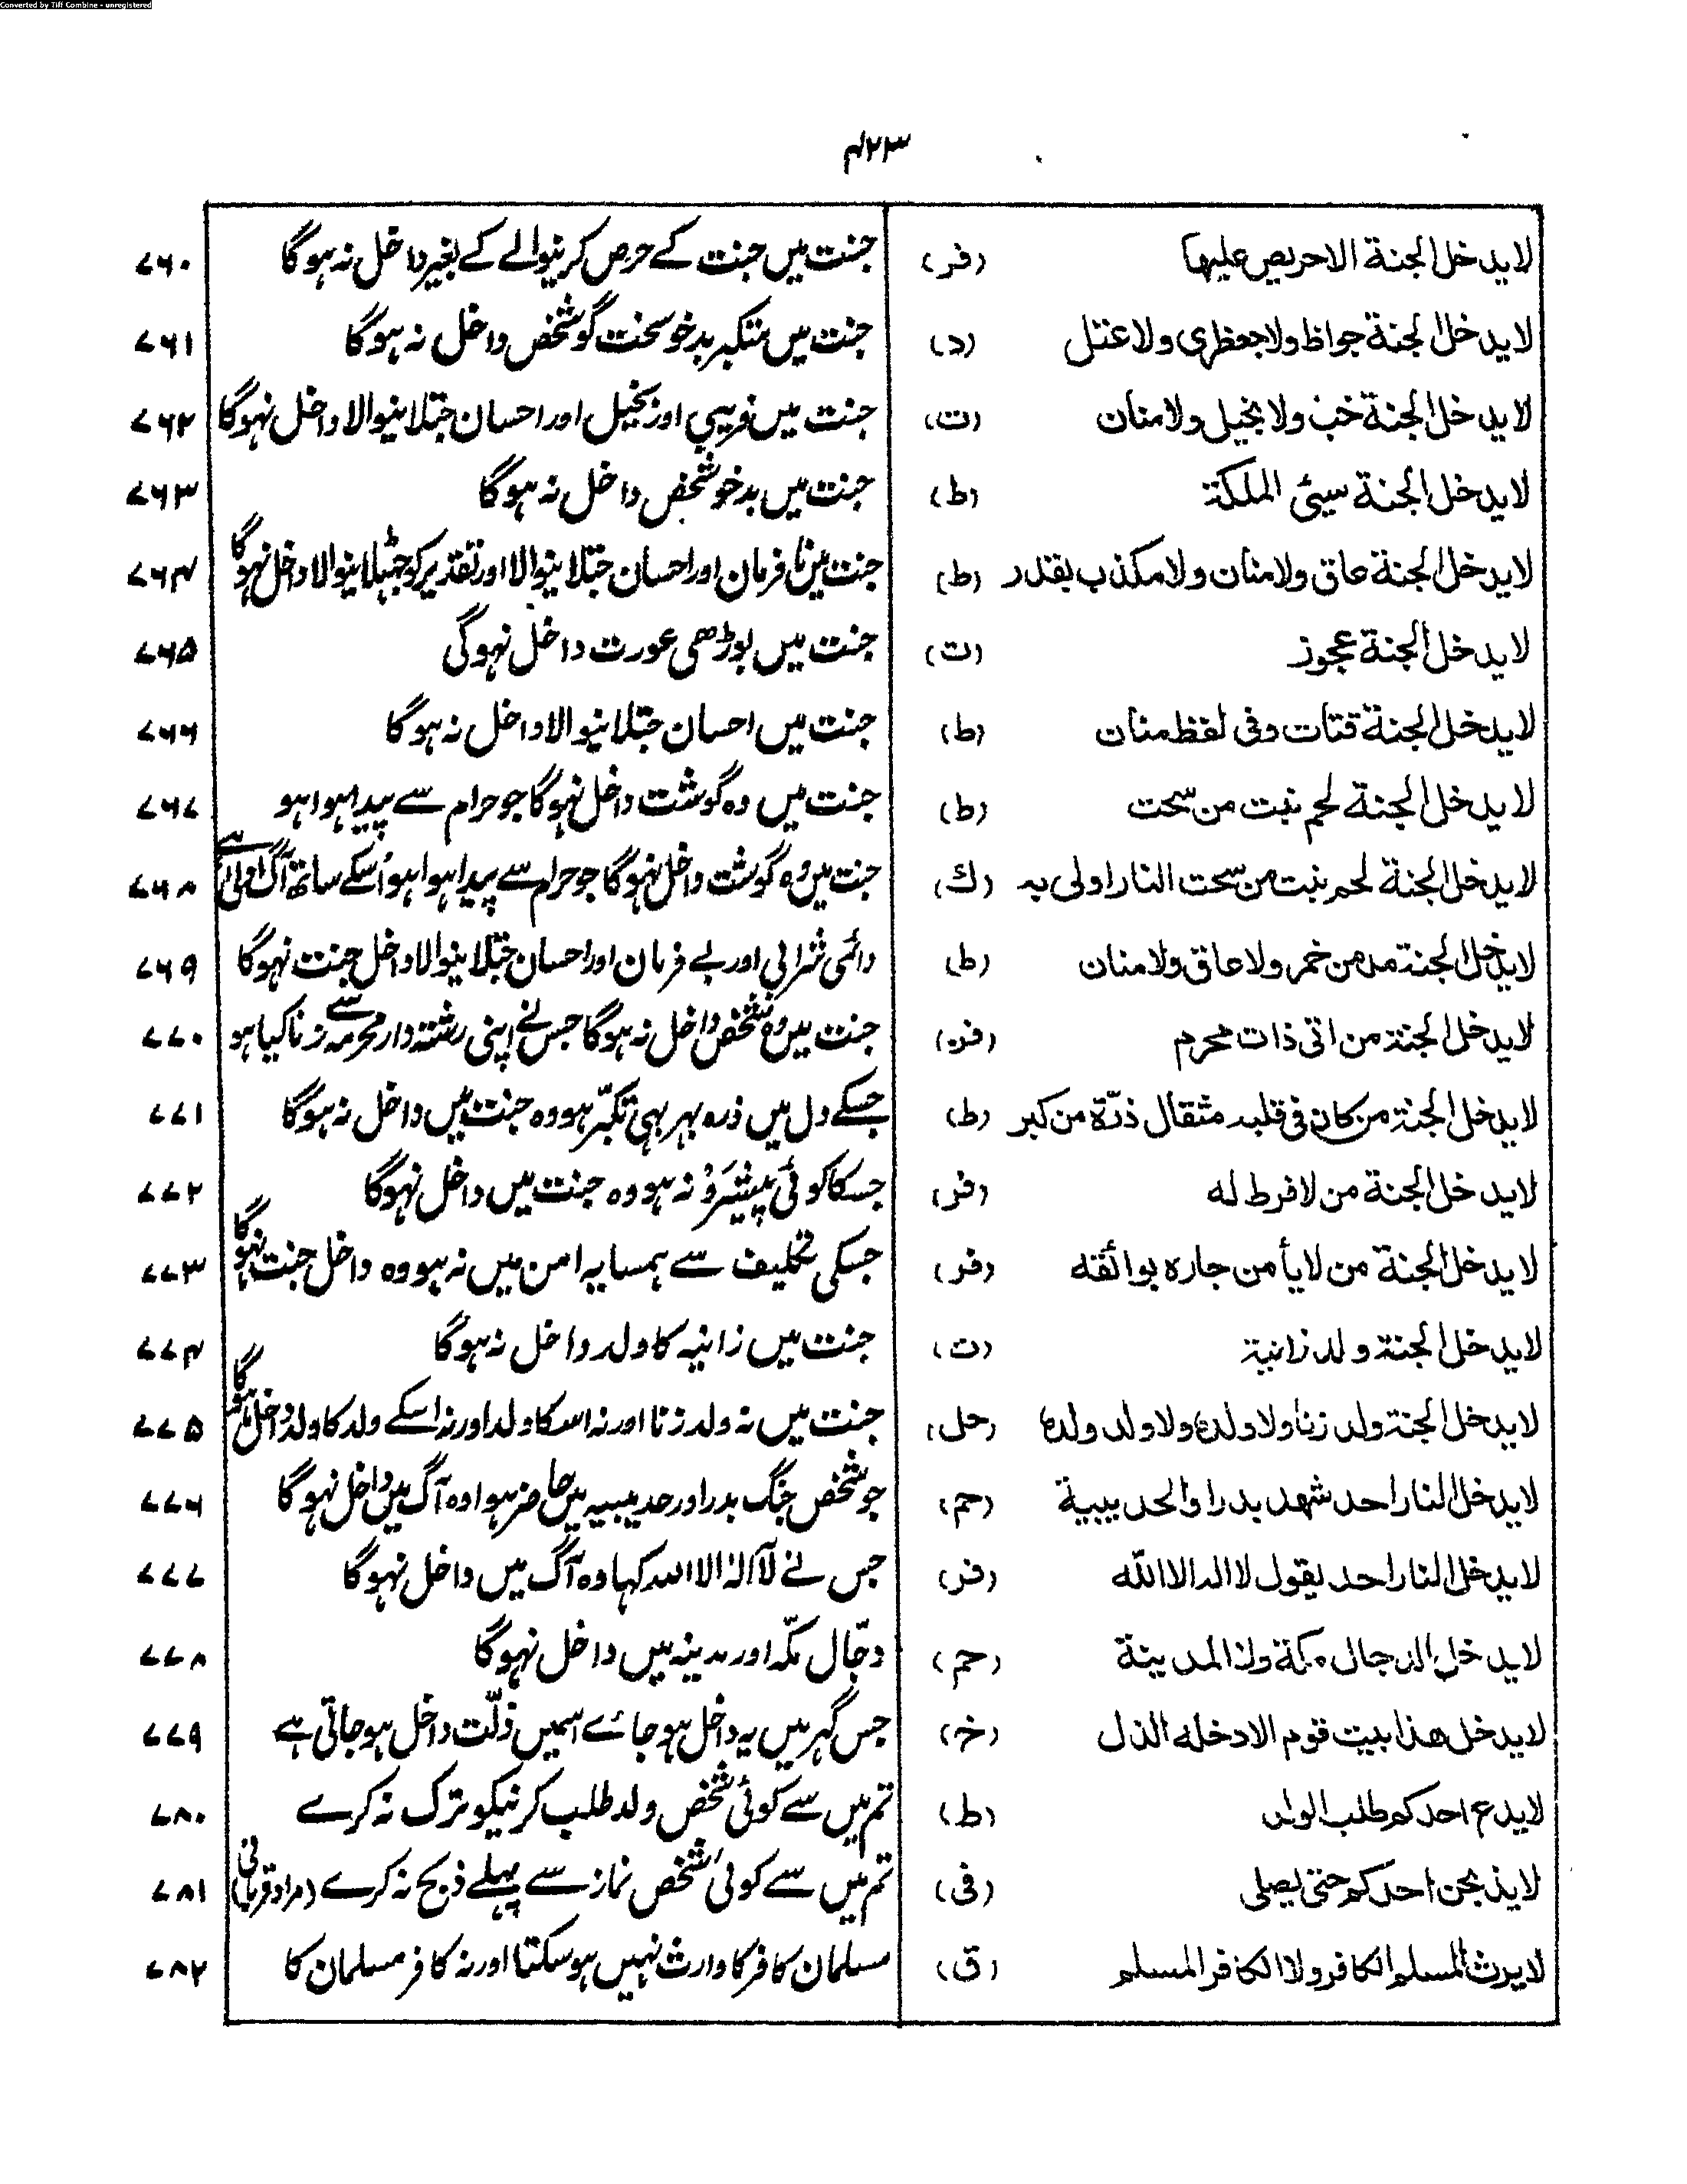 Converted by Tiff Combine - unregistered
۴۲۳
لا يدخل الجنة الا حريص عليها (فر) جنت میں جنت کے حرص کرنیوالے کے بغیر داخل نہ ہوگا ۷۶۰
لا يدخل الجنة جواظ ولا جعظرى ولا عتل (د) جنت میں متکبر بدخو سخت گو شخص داخل نہ ہوگا ۷۶۱
لا يدخل الجنة خب ولا بخيل ولا منان (ت) جنت میں فریبی اور بخیل اور احسان جتلانیوالا داخل نہوگا ۷۶۲
لا يدخل الجنة سيئ الملكة (ط) جنت میں بدخو شخص داخل نہ ہوگا ۷۶۳
لا يدخل الجنة عاق ولا منان ولا مكذب بقدر (ط) جنت میں نافرمان اور احسان جتلانیوالا اور تقدیر کو جہٹلانیوالا داخل نہوگا ۷۶۴
لا يدخل الجنة عجوز (ت) جنت میں بوڑھی عورت داخل نہوگی ۷۶۵
لا يدخل الجنة قتات وفى لفظ منان (ط) جنت میں احسان جتلانیوالا داخل نہ ہوگا ۷۶۶
لا يدخل الجنة لحم نبت من سحت (ط) جنت میں وہ گوشت داخل نہوگا جو حرام سے پیدا ہوا ہو ۷۶۷
لا يدخل الجنة لحم نبت من سحت النار اولى به (ك) جنت میں وہ گوشت داخل نہوگا جو حرام سے پیدا ہوا ہو اُسکے ساتھ آگ اولیٰ ہے ۷۶۸
لا يدخل الجنة مدمن خمر ولا عاق ولا منان (ط) دائمی شرابی اور بے فرمان اور احسان جتلانیوالا داخل جنت نہوگا ۷۶۹
لا يدخل الجنة من اتى ذات محرم (فر) جنت میں وہ شخص داخل نہ ہوگا جس نے اپنی رشتہ دار محرمہ سے زنا کیا ہو ۷۷۰
لا يدخل الجنة من كان فى قلبه مثقال ذرّة من كبر (ط) جسکے دل میں ذرہ بہر بہی تکبّر ہو وہ جنت میں داخل نہ ہوگا ۷۷۱
لا يدخل الجنة من لا فرط له (فر) جسکا کوئی پیشرَوْ نہ ہو وہ جنت میں داخل نہوگا ۷۷۲
لا يدخل الجنة من لا يأمن جاره بوائقه (فر) جسکی تکلیف سے ہمسایہ امن میں نہ ہو وہ داخل جنت نہوگا ۷۷۳
لا يدخل الجنة ولد زانية (ت) جنت میں زانیہ کا ولد داخل نہ ہوگا ۷۷۴
لا يدخل الجنة ولد زنا ولا ولده ولا ولد ولده (حل) جنت میں نہ ولد زنا اور نہ اسکا ولد اور نہ اسکے ولد کا ولد داخل ہوگا ۷۷۵
لا يدخل النار احد شهد بدرا والحديبية (حم) جو شخص جنگ بدر اور حدیبیہ میں حاضر ہوا وہ آگ میں داخل نہوگا ۷۷۶
لا يدخل النار احد يقول لا اله الا الله (فر) جس نے لآ الہٰ الا اللہ کہا وہ آگ میں داخل نہوگا ۷۷۷
لا يدخل الدجال مكة ولا المدينة (حم) دجّال مکّہ اور مدینہ میں داخل نہوگا ۷۷۸
لا يدخل هذا بيت قوم الا دخله الذل (خ) جس گہر میں یہ داخل ہو جائے اسمیں ذلّت داخل ہو جاتی ہے ۷۷۹
لا يدع احدكم طلب الولد (ط) تم میں سے کوئی شخص ولد طلب کرنیکو ترک نہ کرے ۷۸۰
لا يذبحن احدكم حتى يصلى (فى) تم میں سے کوئی شخص نماز سے پہلے ذبح نہ کرے (مراد قربانی) ۷۸۱
لا يرث المسلم الكافر ولا الكافر المسلم (ق) مسلمان کافر کا وارث نہیں ہو سکتا اور نہ کافر مسلمان کا ۷۸۲